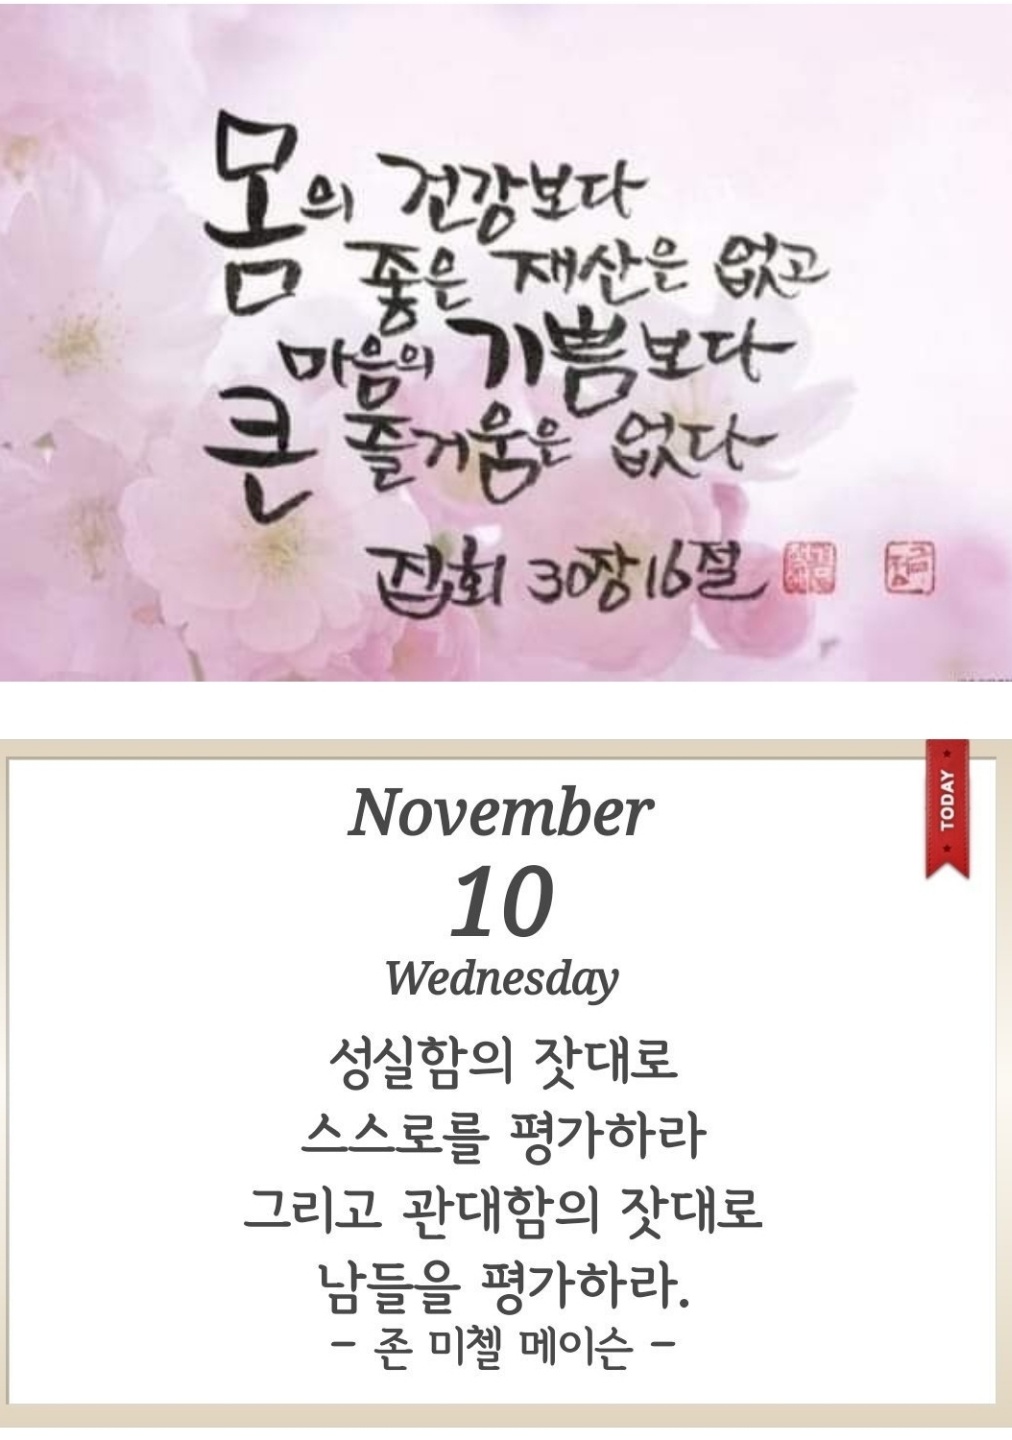 몸의 건강보다
좋은 재산은 없고
마음의 기쁨보다
큰 즐거움은 없다
집회 30장16절
TODAY
November
10
Wednesday
성실함의 잣대로
스스로를 평가하라
그리고 관대함의 잣대로
남들을 평가하라.
- 존 미첼 메이슨 -